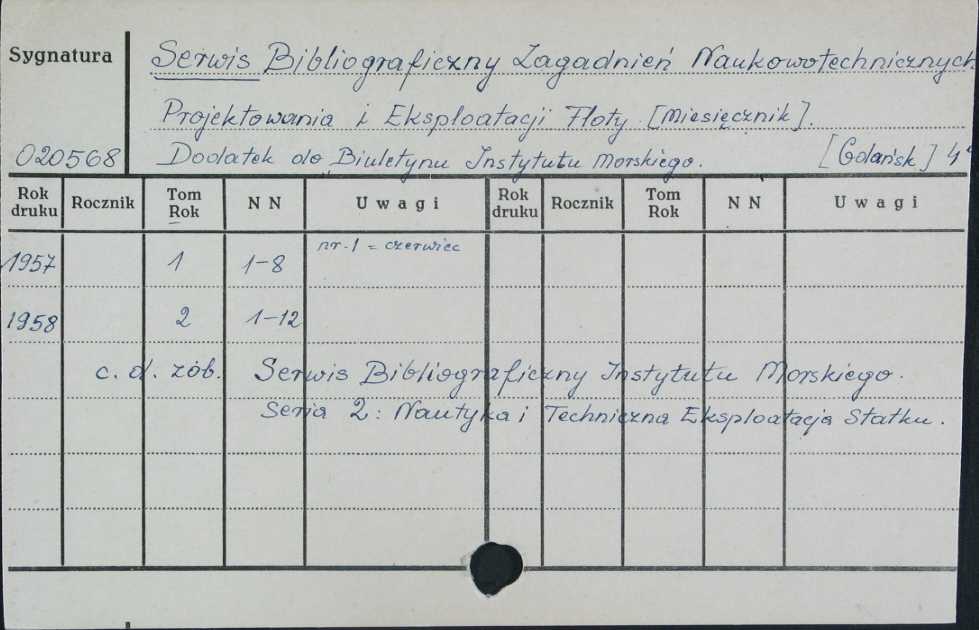 Sygnatura Serwis Bibliograficzny Zagadnień Naukowotechnicznych
Projektowania i Eksploatacji Floty [Miesięcznik].
020568 Dodatek do Biuletynu Instytutu Morskiego. [Gdańsk] 4°
Rok druku Rocznik Tom Rok N N Uwagi Rok druku Rocznik Tom Rok N N Uwagi
1957 1 1-8 nr. 1 = czerwiec
1958 2 1-12
c. d. zob. Serwis Bibliograficzny Instytutu Morskiego.
Seria 2: Nautyka i Techniczna Eksploatacja Statku.